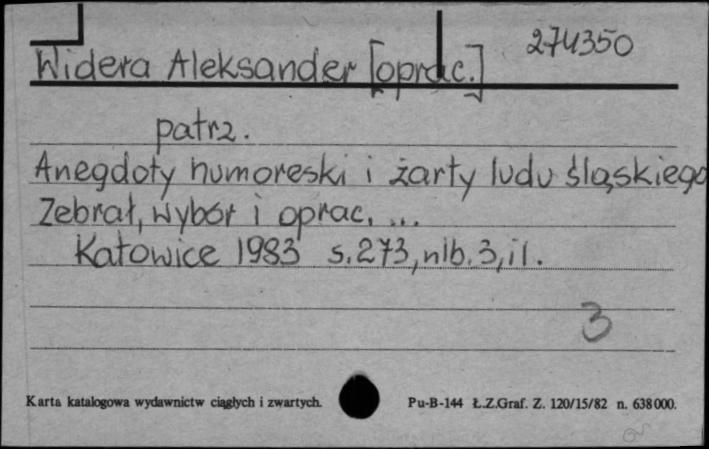 274350
Widera Aleksander [oprac.]
patrz.
Anegdoty humoreski i żarty ludu śląskiego
Zebrał, wybór i oprac. ...
Katowice 1983 s. 273, nlb. 3, il.
3
Karta katalogowa wydawnictw ciągłych i zwartych. Pu-B-144 Ł.Z.Graf. Z. 120/15/82 n. 638000.